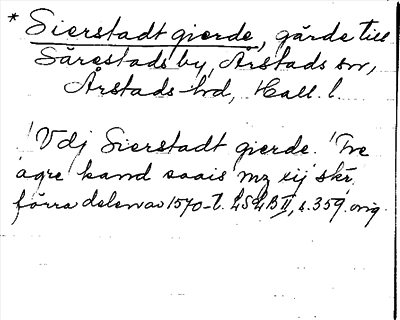 * Sierstadt gierde, gärde till
Särestads by, Årstads sn,
Årstads hd, Hall. l.
"Vdj Sierstadt gierde. Tre
agre kand saais mz eij" skr.
förra delen av 1570-t. LSLB II, s. 359. orig.